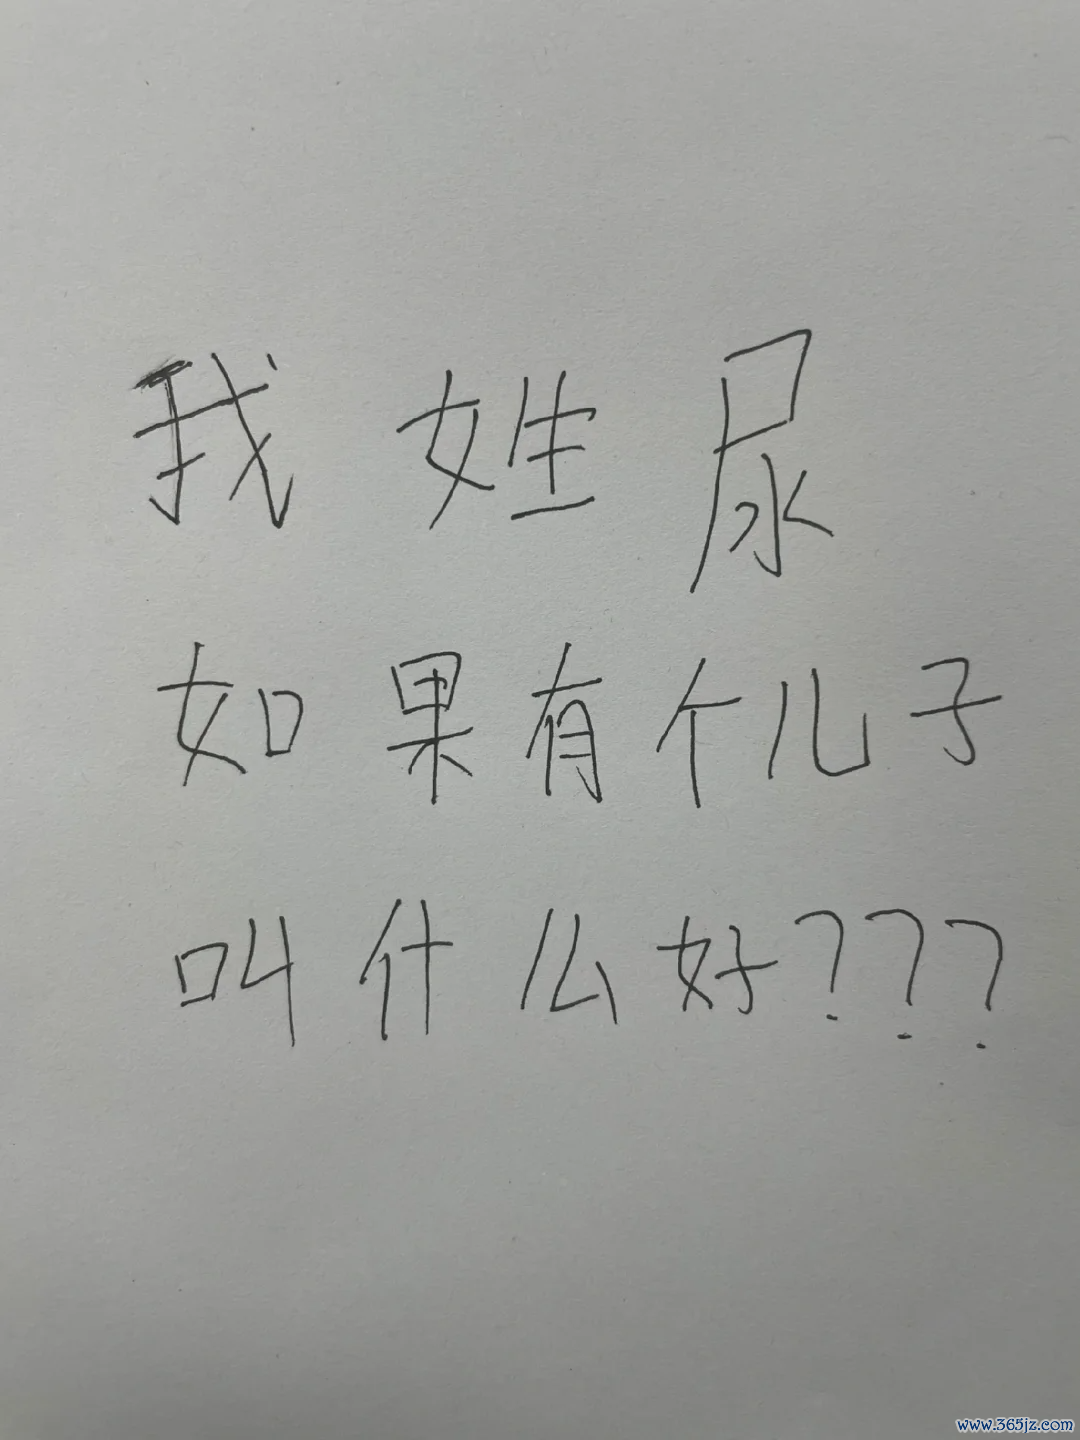 我姓尿
如果有个儿子
叫什么好???
www.365jz.com